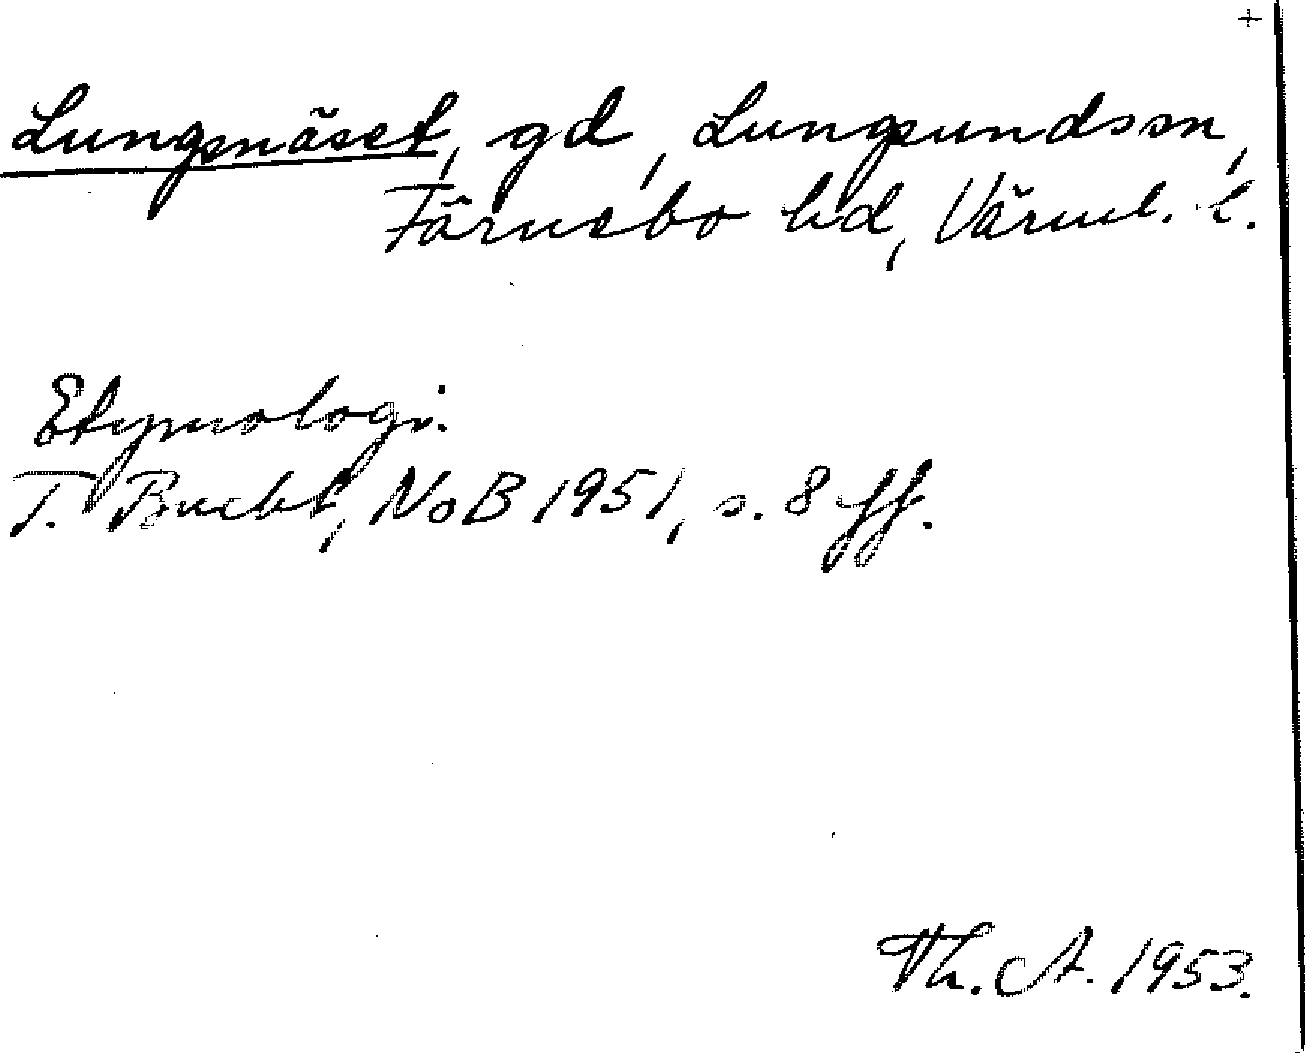 +
Lungsnäset, gd, Lungsundssn,
Färnebo hd, Värml. l.
Etymologi.
T. Bucht, NoB 1951, s. 8 ff.
Th. A. 1953.